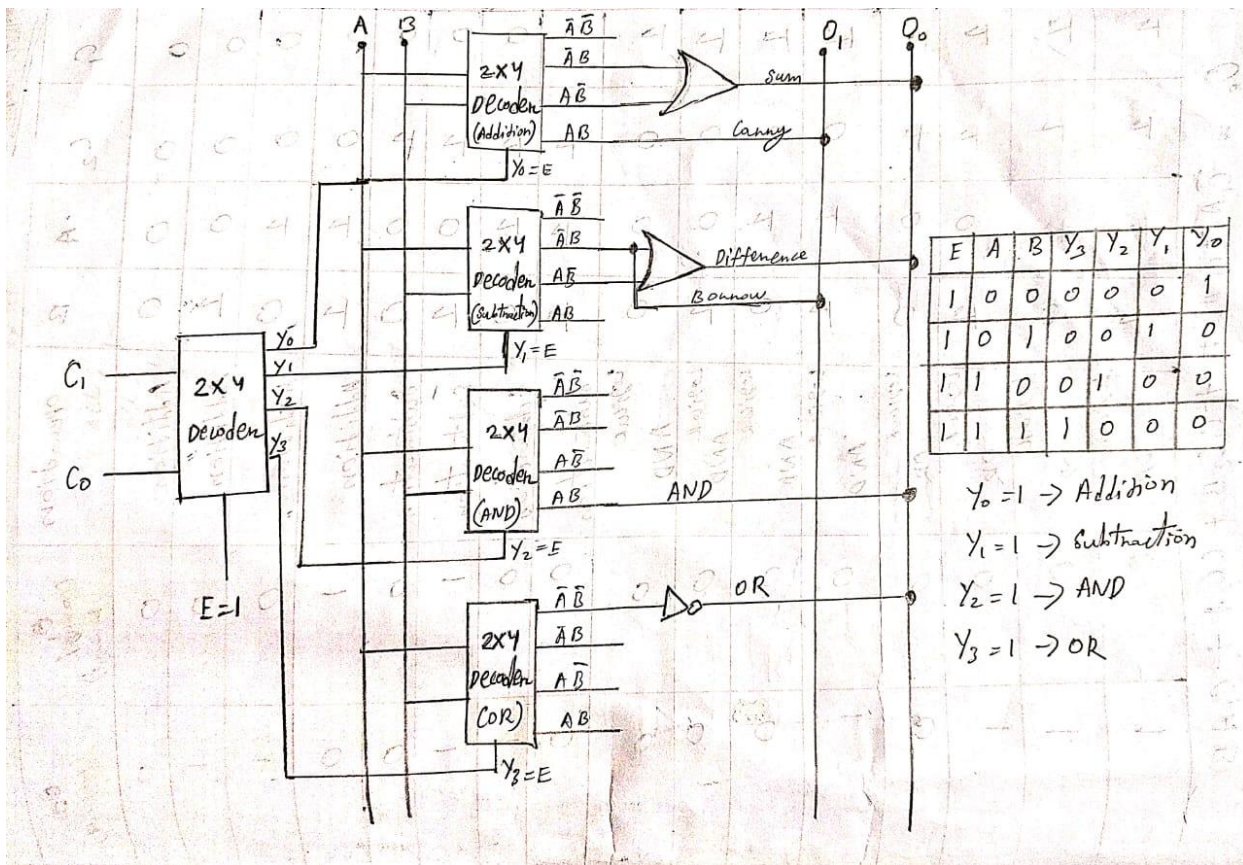 A B O₁ O₀
2x4
Decoder
(Addition)
A̅ B̅
A̅ B
A B̅
A B
Sum
Carry
Y₀ = E
2x4
Decoder
(Subtraction)
A̅ B̅
A̅ B
A B̅
A B
Difference
Borrow
Y₁ = E
C₁
C₀
2x4
Decoder
Y₀
Y₁
Y₂
Y₃
E=1
2x4
Decoder
(AND)
A̅ B̅
A̅ B
A B̅
A B
AND
Y₂ = E
2x4
Decoder
(OR)
A̅ B̅
A̅ B
A B̅
A B
OR
Y₃ = E
E A B Y₃ Y₂ Y₁ Y₀
1 0 0 0 0 0 1
1 0 1 0 0 1 0
1 1 0 0 1 0 0
1 1 1 1 0 0 0
Y₀ = 1 → Addition
Y₁ = 1 → Subtraction
Y₂ = 1 → AND
Y₃ = 1 → OR